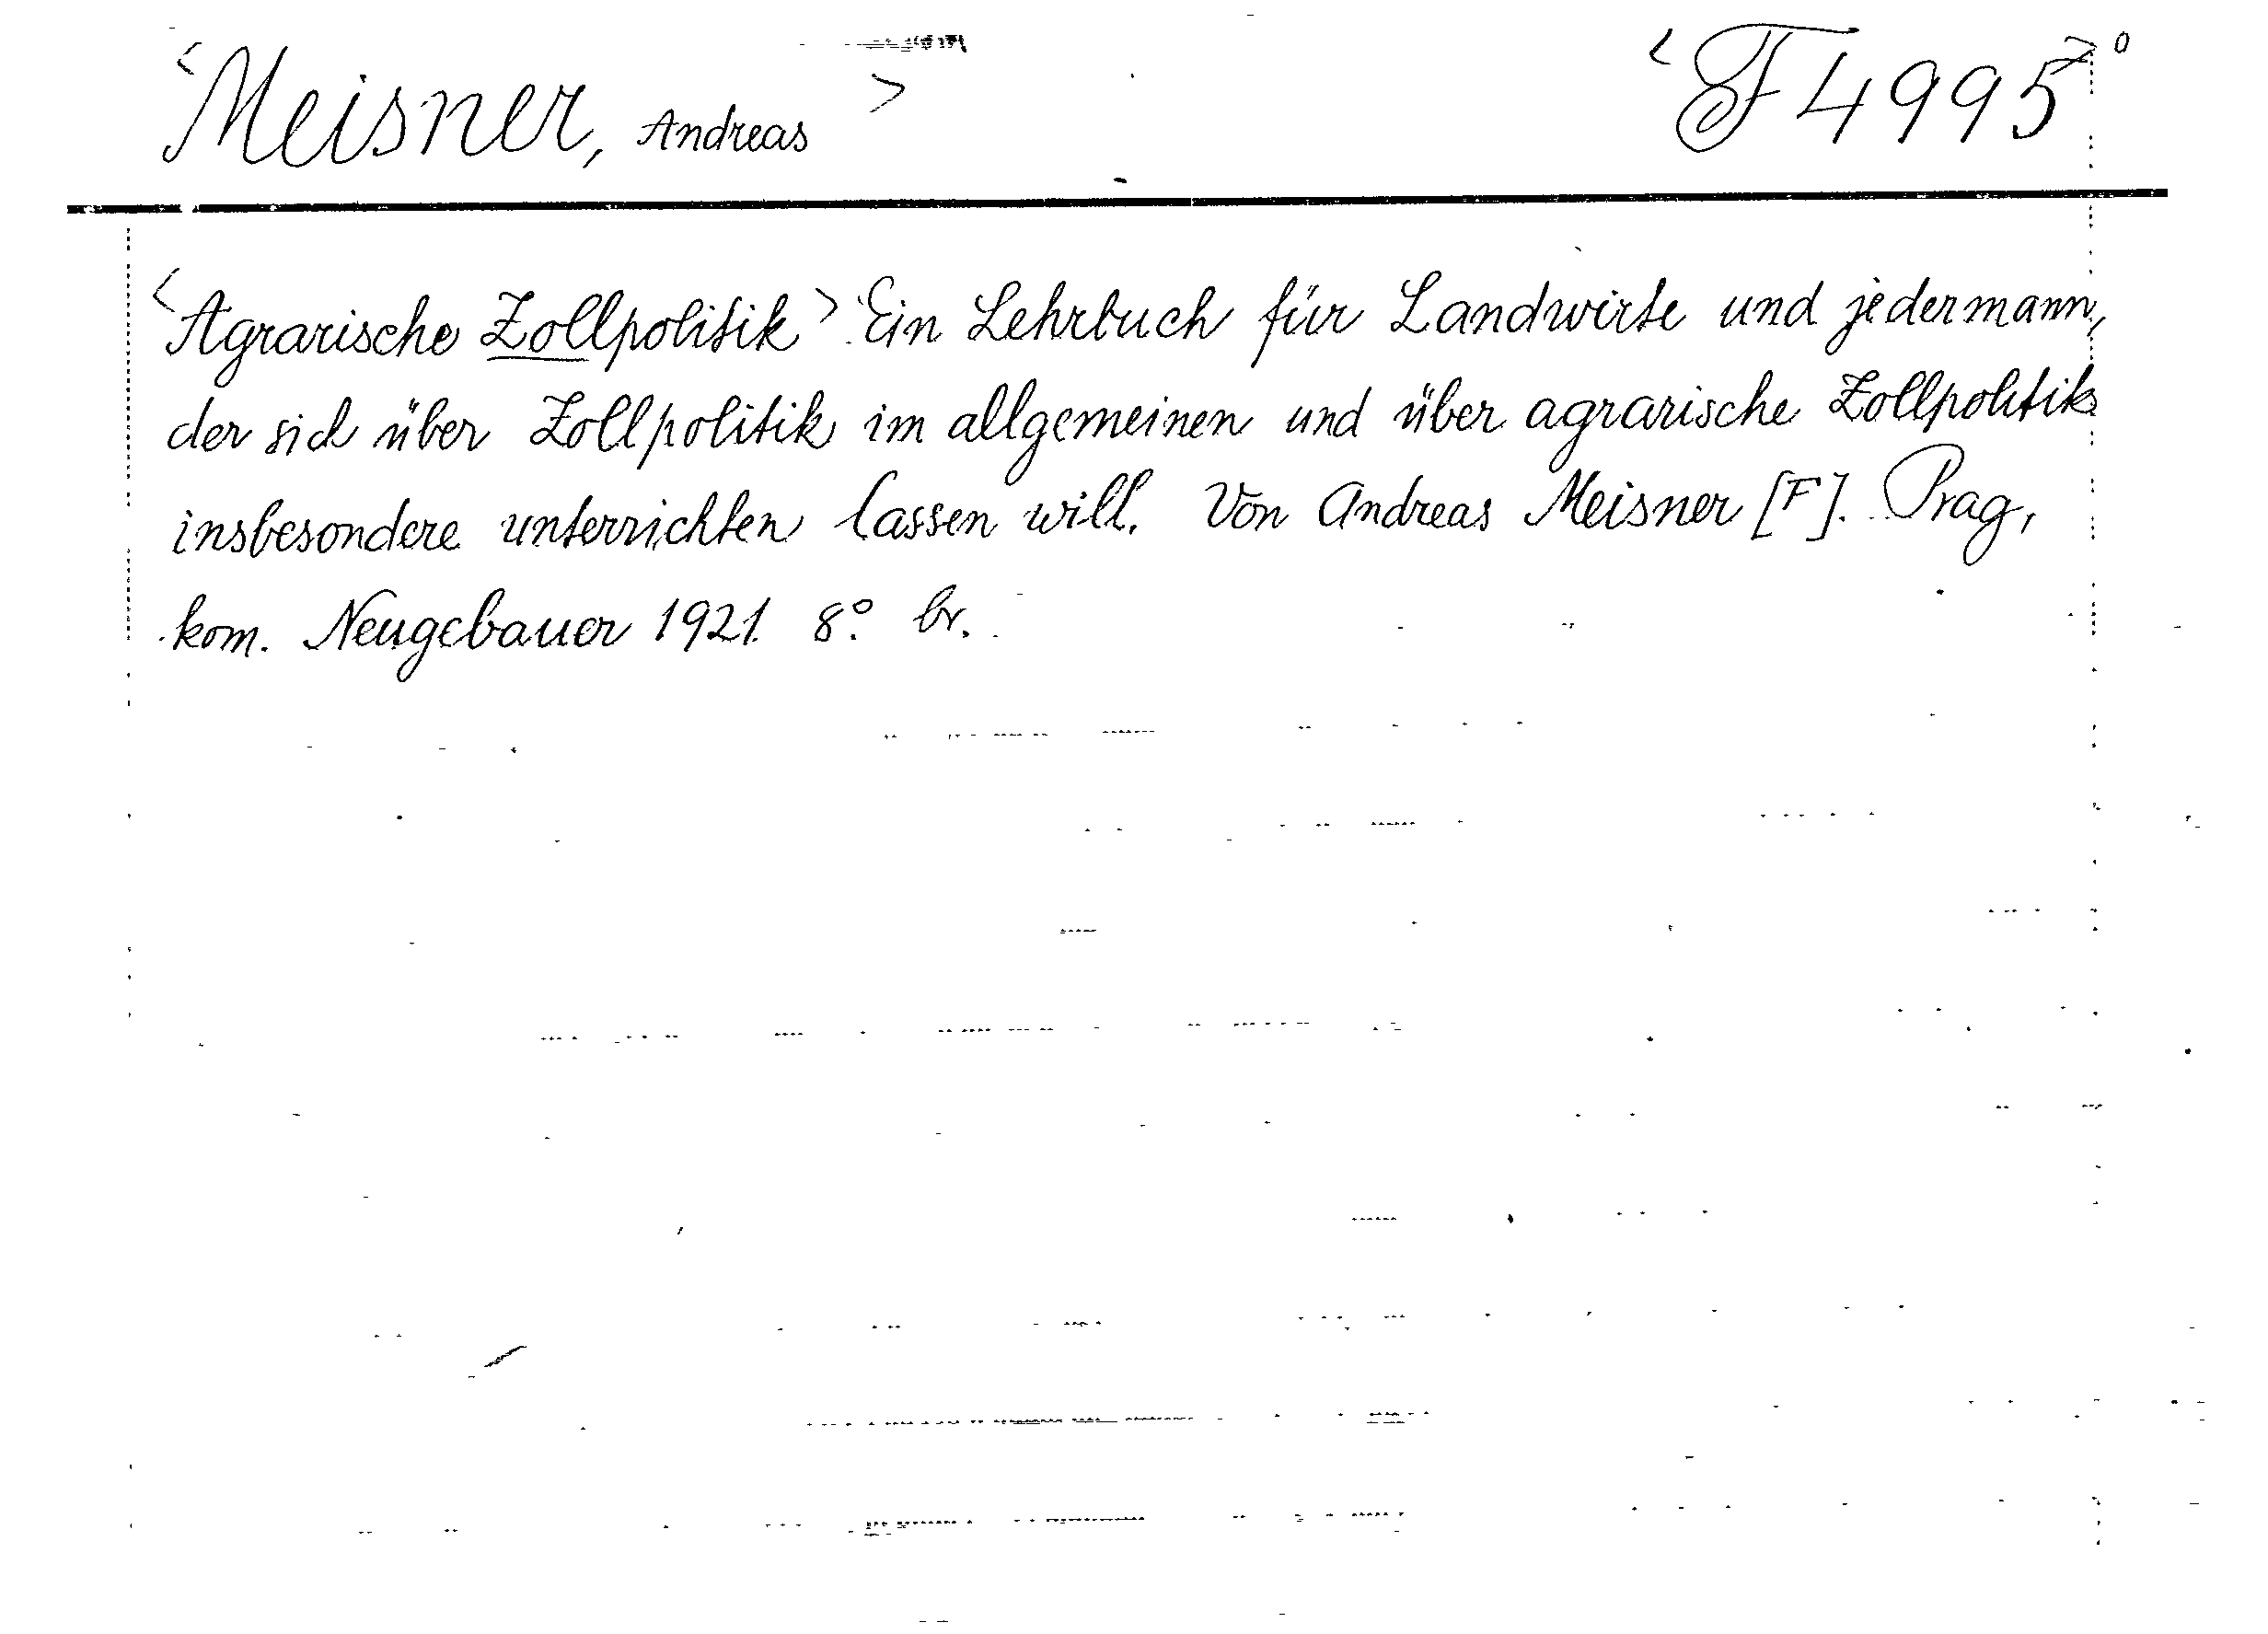 <Meisner, Andreas> <F 4995>⁰
<Agrarische Zollpolitik> Ein Lehrbuch für Landwirte und jedermann,
der sich über Zollpolitik im allgemeinen und über agrarische Zollpolitik
insbesondere unterrichten lassen will. Von Andreas Meisner [F]. Prag,
kom. Neugebauer 1921. 8°. br.